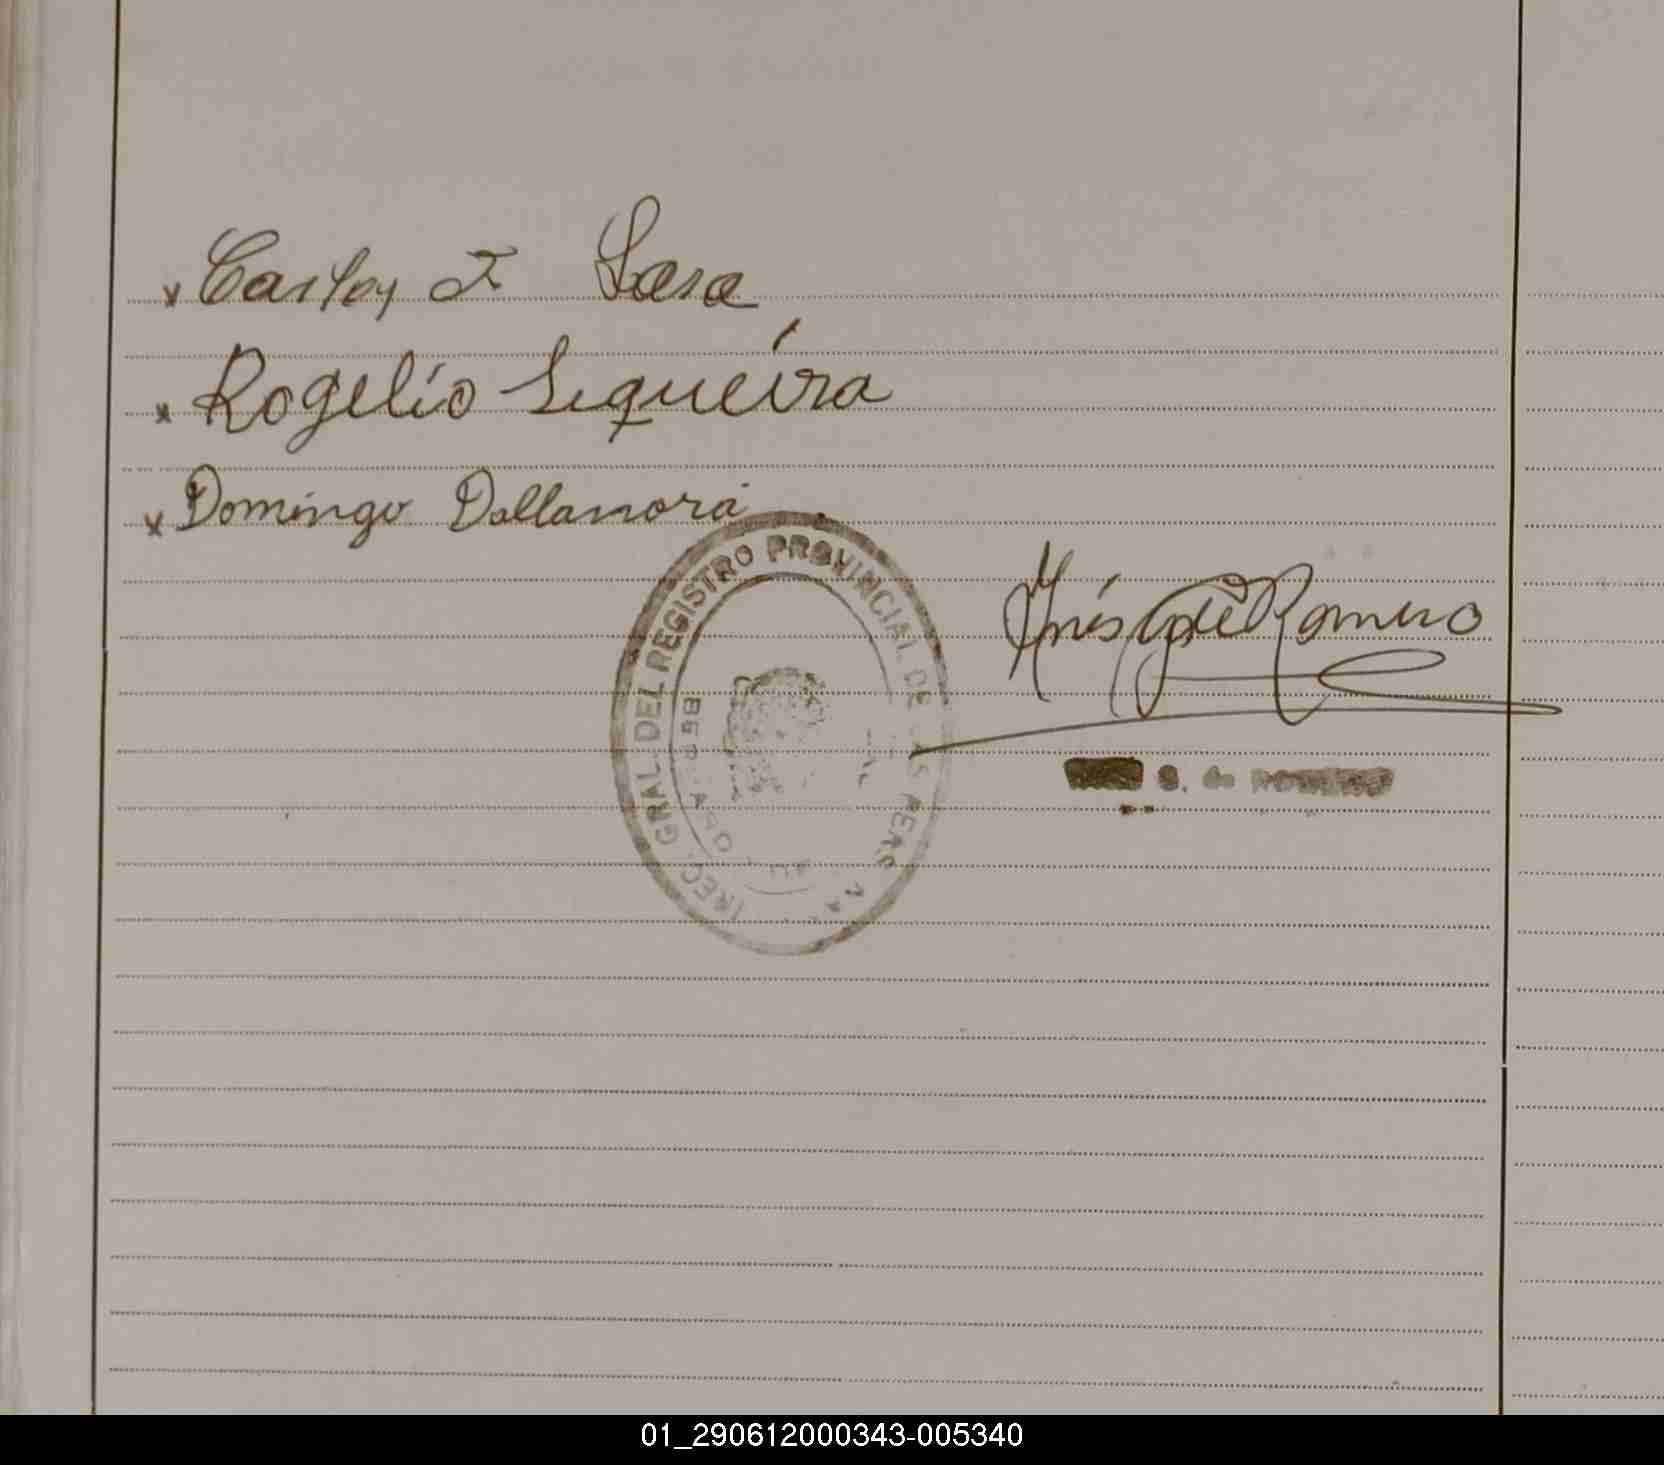 x Carlos F Sara
x Rogelio Siqueira
x Domingo Dallanora
REC. GRAL. DEL REGISTRO PROVINCIAL DE LAS PERS
Inés G de Romero
S. de
01_290612000343-005340